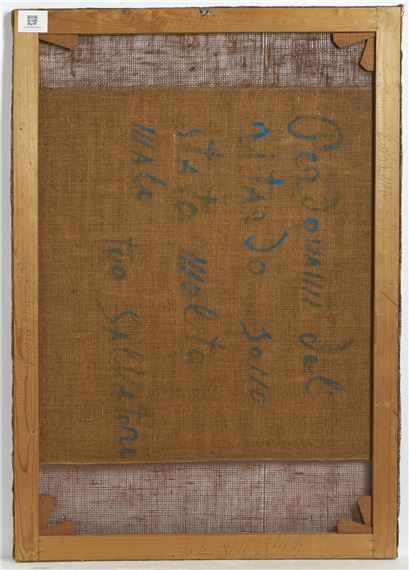 Perdonami del
ritardo sono
stato molto
male
tuo Salvatore